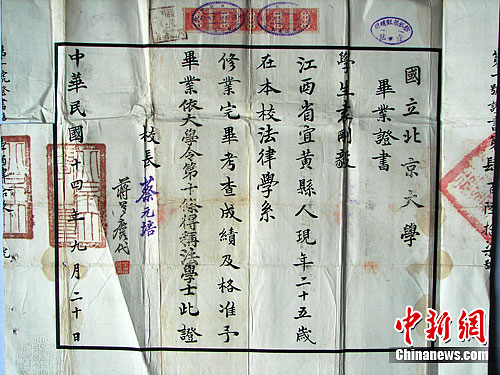 國立北京大學
畢業證書
學生袁剛毅
江西省宜黃縣人現年二十五歲
在本校法律學系
修業完畢考查成績及格准予
畢業依大學令第十條得稱法學士此證
校長 蔡元培
蔣夢麐代
中華民國十四年九月二十日
中新网
Chinanews.com